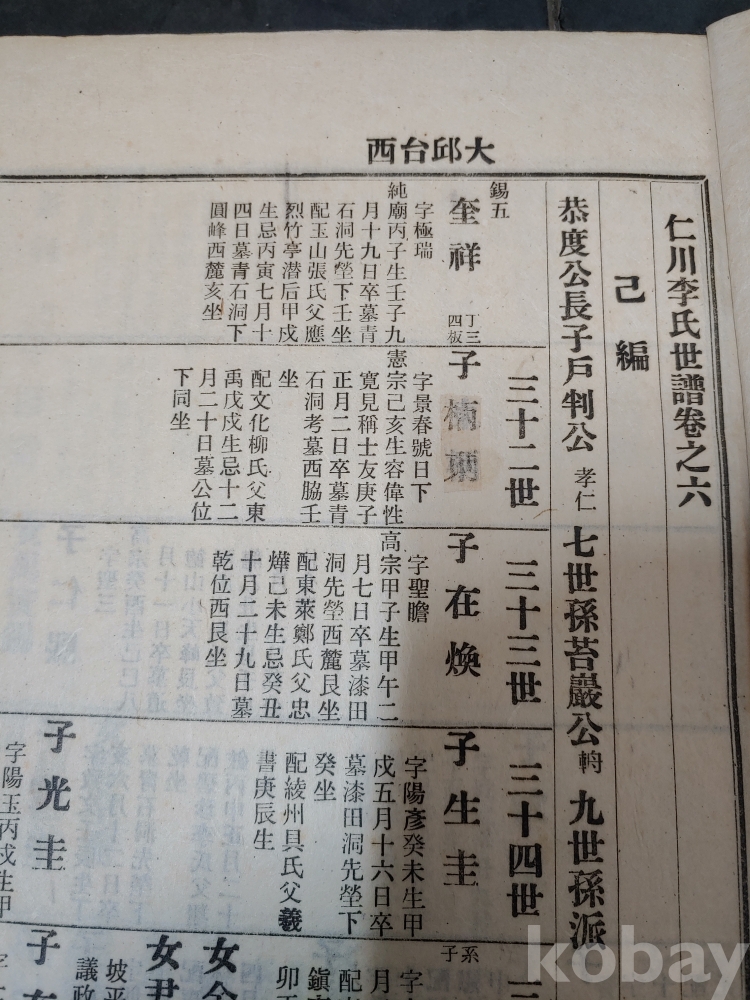 大邱台西
仁川李氏世譜卷之六
己編
恭度公長子戶判公 孝仁 七世孫苔巖公 九世孫派
錫五
奎祥
丁三
四板
字極瑞
純廟丙子生壬子九
月十九日卒墓青
石洞先塋下壬坐
配玉山張氏父應
烈竹亭潜后甲戍
生忌丙寅七月十
四日墓青石洞下
圓峰西麓亥坐
三十二世
子
字景春號日下
憲宗己亥生容偉性
寬見稱士友庚子
正月二日卒墓青
石洞考墓西脇壬
坐
配文化柳氏父東
禹戊戍生忌十二
月二十日墓公位
下同坐
三十三世
子在煥
字聖瞻
高宗甲子生甲午二
月七日卒墓漆田
洞先塋西麓艮坐
配東萊鄭氏父忠
燁己未生忌癸丑
十月二十九日墓
乾位西艮坐
三十四世
子生圭
字陽彥癸未生甲
戍五月十六日卒
墓漆田洞先塋下
癸坐
配綾州具氏父羲
書庚辰生
子光圭
字陽玉丙戍生甲
系
子
女
女尹
坡平
議政
子
kobay